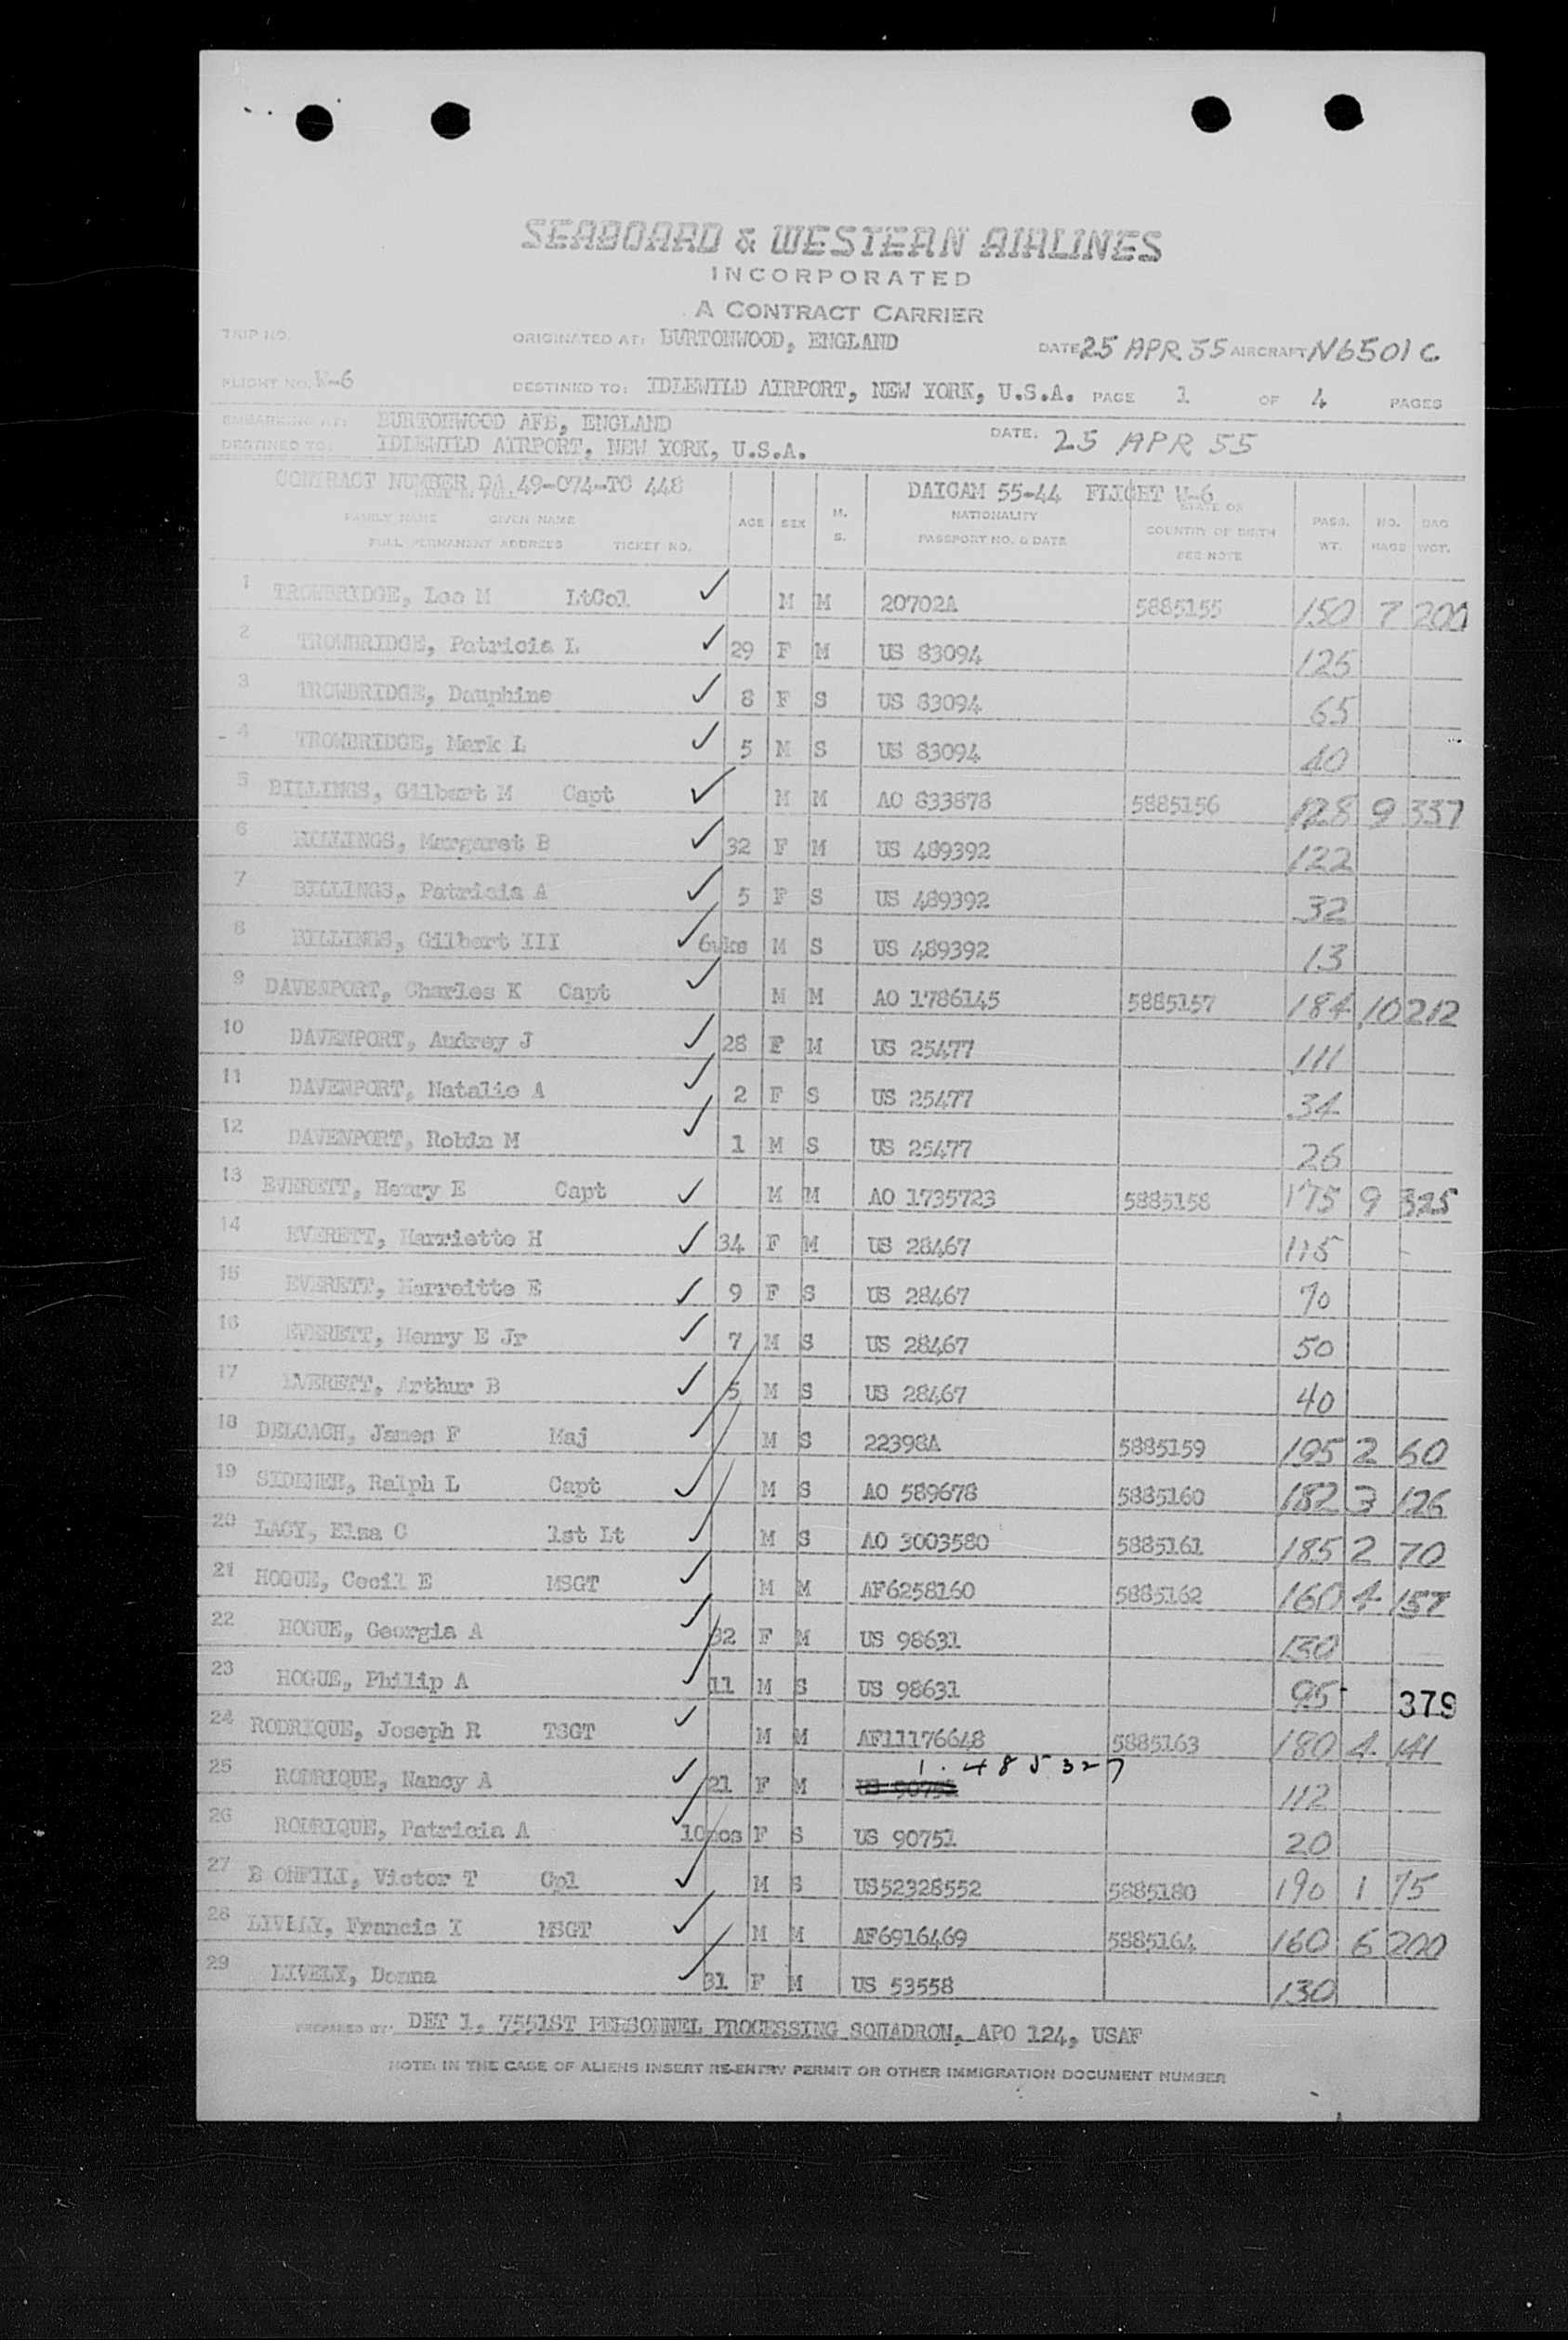 SEABOARD & WESTERN AIRLINES
INCORPORATED
A CONTRACT CARRIER
TRIP NO. ORIGINATED AT: BURTONWOOD, ENGLAND DATE 25 APR 55 AIRCRAFT N6501C
FLIGHT NO. W-6 DESTINED TO: IDLEWILD AIRPORT, NEW YORK, U.S.A. PAGE 1 OF 4 PAGES
EMBARKING AT: BURTONWOOD AFB, ENGLAND
DESTINED TO: IDLEWILD AIRPORT, NEW YORK, U.S.A. DATE: 25 APR 55
CONTRACT NUMBER DA 49-074-TC 448 DAICAM 55-44 FLIGHT W-6
FAMILY NAME GIVEN NAME AGE SEX M. S. NATIONALITY STATE OR PASS. NO. BAG
FULL PERMANENT ADDRESS TICKET NO. PASSPORT NO. & DATE COUNTRY OF BIRTH WT. BAGS WGT.
SEE NOTE
1 TROWBRIDGE, Leo M LtCol ✓ M M 20702A 5885155 150 7 200
2 TROWBRIDGE, Patricia L ✓ 29 F M US 83094 125
3 TROWBRIDGE, Dauphine ✓ 8 F S US 83094 65
4 TROWBRIDGE, Mark L ✓ 5 M S US 83094 40
5 BILLINGS, Gilbert M Capt ✓ M M AO 833878 5885156 128 9 337
6 BILLINGS, Margaret B ✓ 32 F M US 489392 122
7 BILLINGS, Patricia A ✓ 5 F S US 489392 32
8 BILLINGS, Gilbert III ✓ 6wks M S US 489392 13
9 DAVENPORT, Charles K Capt ✓ M M AO 1786145 5885157 184 10 212
10 DAVENPORT, Audrey J ✓ 28 F M US 25477 111
11 DAVENPORT, Natalie A ✓ 2 F S US 25477 34
12 DAVENPORT, Robin M ✓ 1 M S US 25477 26
13 EVERETT, Henry E Capt ✓ M M AO 1735723 5885158 175 9 325
14 EVERETT, Harriette H ✓ 34 F M US 28467 115
15 EVERETT, Harreitte E ✓ 9 F S US 28467 70
16 EVERETT, Henry E Jr ✓ 7 M S US 28467 50
17 EVERETT, Arthur B ✓ 5 M S US 28467 40
18 DELOACH, James F Maj ✓ M S 22398A 5885159 195 2 60
19 SIDENER, Ralph L Capt ✓ M S AO 589678 5885160 182 3 126
20 LACY, Elsa C 1st Lt ✓ M S AO 3003580 5885161 185 2 70
21 HOGUE, Cecil E MSGT ✓ M M AF6258160 5885162 160 4 157
22 HOGUE, Georgia A ✓ 32 F M US 98631 130
23 HOGUE, Philip A ✓ 11 M S US 98631 95 379
24 RODRIQUE, Joseph R TSGT ✓ M M AF11176648 5885163 180 4 141
25 RODRIQUE, Nancy A ✓ 21 F M 1.485327 112
26 RODRIQUE, Patricia A ✓ 10mos F S US 90751 20
27 B ONFILI, Victor T Cpl ✓ M S US52328552 5885180 190 1 75
28 LIVELY, Francis I MSGT ✓ M M AF6916469 5885164 160 6 200
29 LIVELY, Donna ✓ 31 F M US 53558 130
PREPARED BY: DET 1, 7551ST PERSONNEL PROCESSING SQUADRON, APO 124, USAF
NOTE: IN THE CASE OF ALIENS INSERT RE-ENTRY PERMIT OR OTHER IMMIGRATION DOCUMENT NUMBER